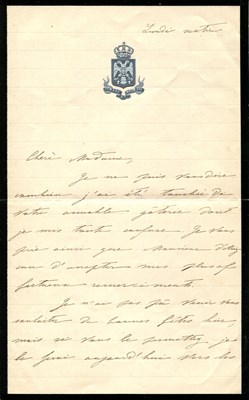 Lundi matin
Chère Madame,
Je ne puis vous dire
combien j'ai été touchée de
votre aimable gâterie dont
je suis toute confuse. Je vous
prie ainsi que Monsieur
d'accepter mes plus
remerciements.
Je n'ai pas pu venir vous
souhaiter de bonnes fêtes hier,
mais si vous le permettez, je
le ferai aujourd'hui vers les